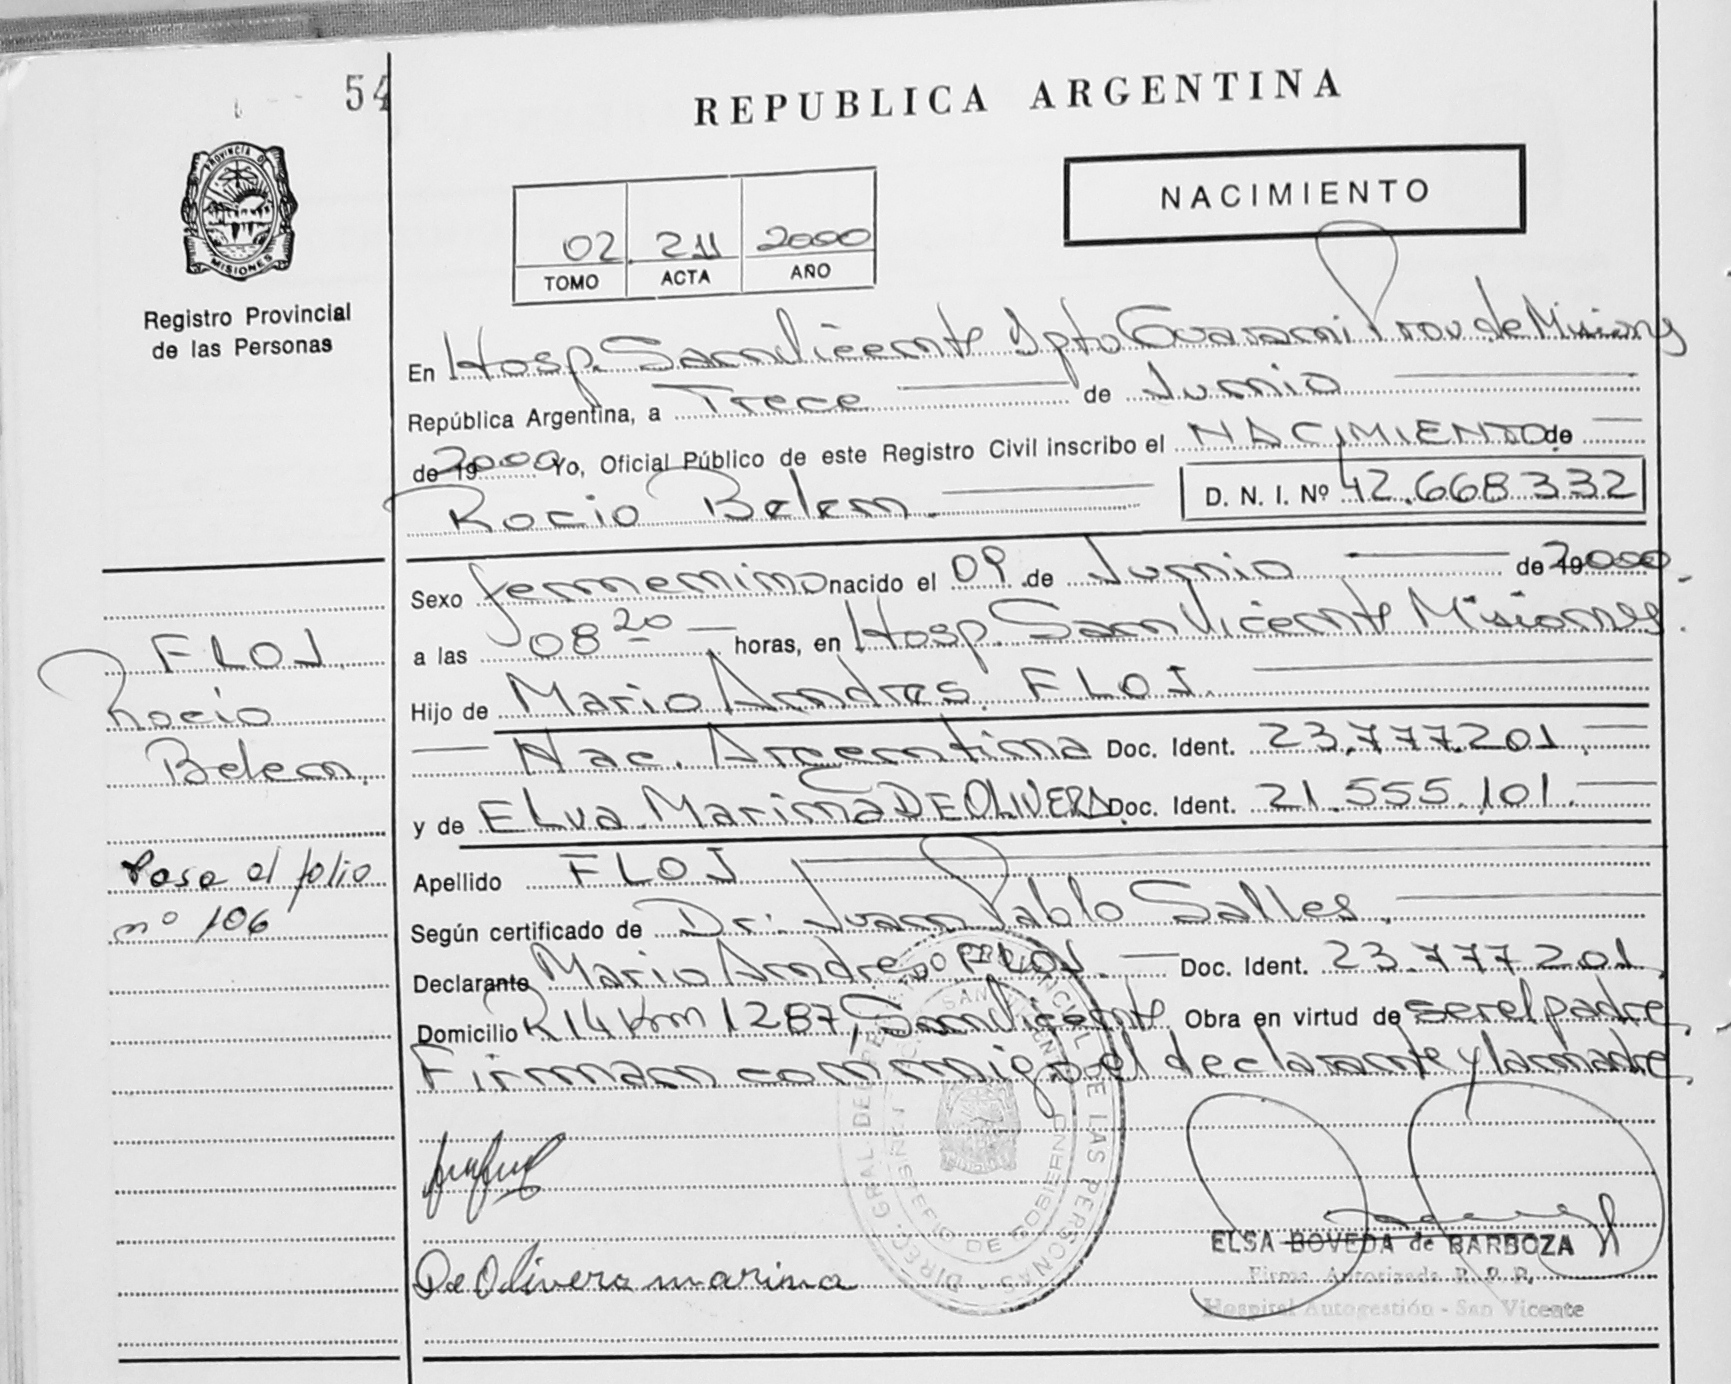 54
REPUBLICA ARGENTINA
PROVINCIA DE
MISIONES
Registro Provincial
de las Personas
NACIMIENTO
02 211 2000
TOMO ACTA AÑO
En Hosp. San Vicente Dpto Guarani Prov. de Misiones
República Argentina, a Trece de Junio
de 19 2000 Yo, Oficial Público de este Registro Civil inscribo el NACIMIENTO de
Rocio Belem. D. N. I. Nº 42.668.332
Sexo femenino nacido el 09 de Junio de 19 2000
a las 08 20 horas, en Hosp. San Vicente Misiones.
Hijo de Mario Andres FLOJ.
Nac. Argentina Doc. Ident. 23.777.201
y de ELva Marina DE OLIVERA Doc. Ident. 21.555.101.
Apellido FLOJ
Según certificado de Dr. Juan Pablo Salles.
Declarante Mario Andres FLOJ. Doc. Ident. 23.777.201
Domicilio R 14 Km 1287, San Vicente Obra en virtud de ser el padre,
Firman conmigo el declarante y la madre.
FLOJ
Rocio
Belem.
Pasa al folio
nº 106
De Olivera marina
DIREC. GRAL. DE PROVINCIAL DE LAS PERSONAS
DE GOBIERNO
ELSA BOVEDA de BARBOZA
Firma Autorizada R. P. P.
Hospital Autogestión - San Vicente